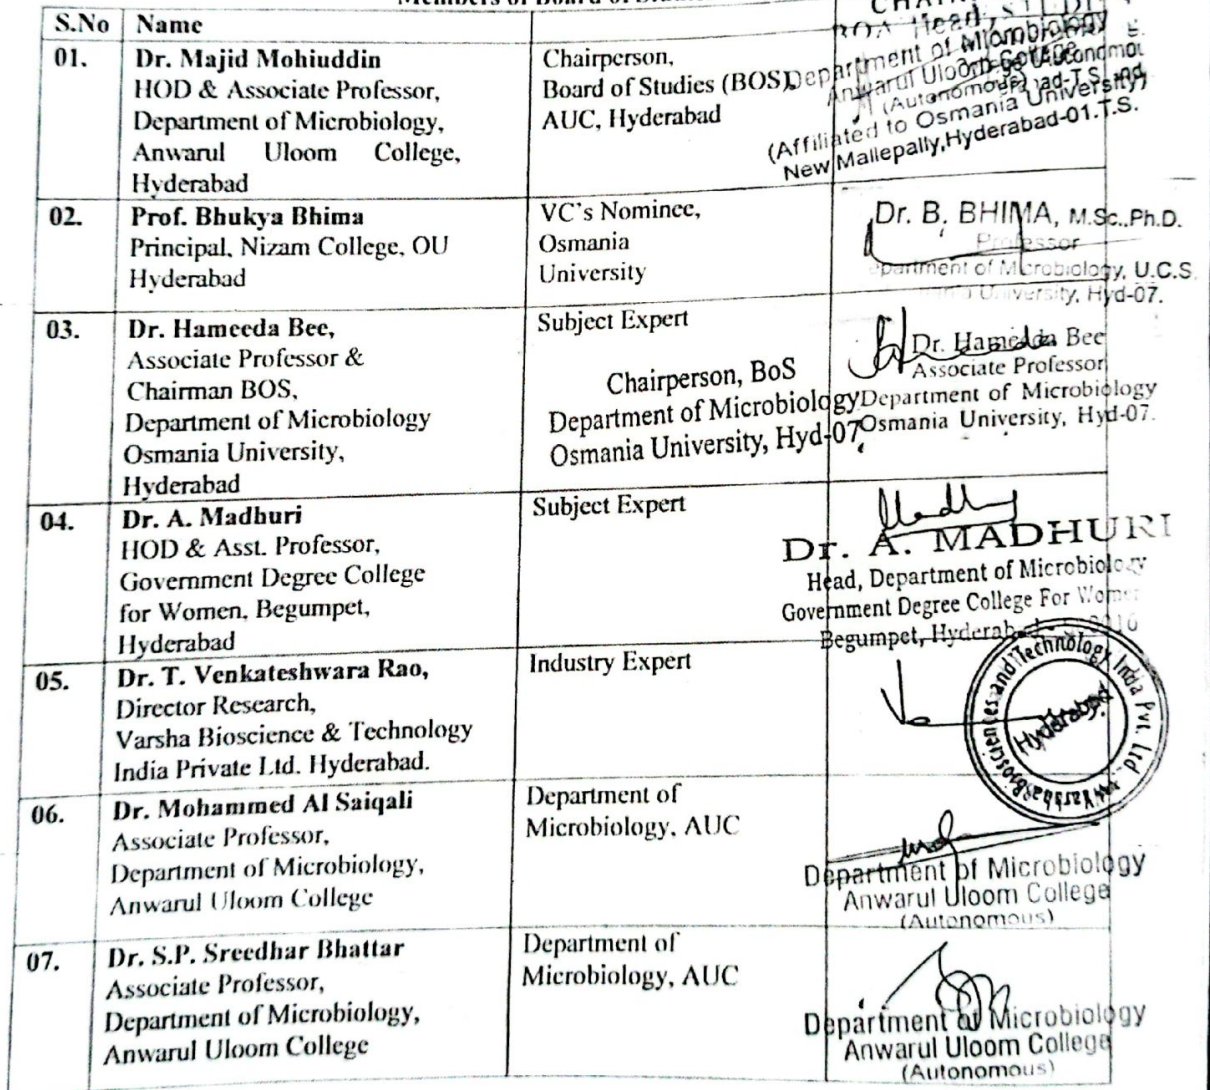 Members of Board of
S.No Name
01. Dr. Majid Mohiuddin
HOD & Associate Professor,
Department of Microbiology,
Anwarul Uloom College,
Hyderabad
Chairperson,
Board of Studies (BOS),
AUC, Hyderabad
Head,
Department of Microbiology
Anwarul Uloom College
(Autonomous)
(Affiliated to Osmania University)
New Mallepally,Hyderabad-01.T.S.
02. Prof. Bhukya Bhima
Principal, Nizam College, OU
Hyderabad
VC's Nominee,
Osmania
University
Dr. B. BHIMA, M.Sc.,Ph.D.
Professor
epartment of Microbiology, U.C.S.
University, Hyd-07.
03. Dr. Hameeda Bee,
Associate Professor &
Chairman BOS,
Department of Microbiology
Osmania University,
Hyderabad
Subject Expert
Chairperson, BoS
Department of Microbiology
Osmania University, Hyd-07
Dr. Hameeda Bee
Associate Professor
Department of Microbiology
Osmania University, Hyd-07.
04. Dr. A. Madhuri
HOD & Asst. Professor,
Government Degree College
for Women, Begumpet,
Hyderabad
Subject Expert
Dr. A. MADHURI
Head, Department of Microbiology
Government Degree College For Women
Begumpet, Hyderabad
05. Dr. T. Venkateshwara Rao,
Director Research,
Varsha Bioscience & Technology
India Private Ltd. Hyderabad.
Industry Expert
Varsha Biosciences and Technology India Pvt. Ltd.
Hyderabad
06. Dr. Mohammed Al Saiqali
Associate Professor,
Department of Microbiology,
Anwarul Uloom College
Department of
Microbiology, AUC
Department of Microbiology
Anwarul Uloom College
(Autonomous)
07. Dr. S.P. Sreedhar Bhattar
Associate Professor,
Department of Microbiology,
Anwarul Uloom College
Department of
Microbiology, AUC
Department of Microbiology
Anwarul Uloom College
(Autonomous)